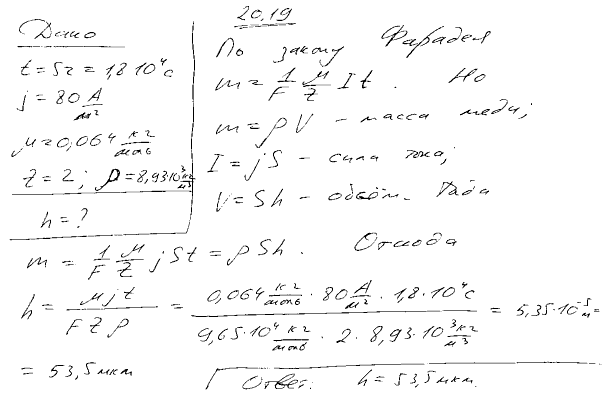 20.19
Дано
t = 5г = 1,8 10⁴ с
j = 80 А/м²
μ = 0,064 кг/моль
z = 2; ρ = 8,93 10³ кг/м³
h = ?
По закону Фарадея
m = 1/F μ/Z I t. Но
m = ρV – масса меди;
I = jS – сила тока;
V = Sh – объём. Тогда
m = 1/F μ/Z jSt = ρSh. Отсюда
h = μjt / FZρ = 0,064 кг/моль · 80 А/м² · 1,8 · 10⁴ с / 9,65 · 10⁴ кг/моль · 2 · 8,93 · 10³ кг/м³ = 5,35 · 10⁻⁵ м =
= 53,5 мкм
Ответ: h = 53,5 мкм.